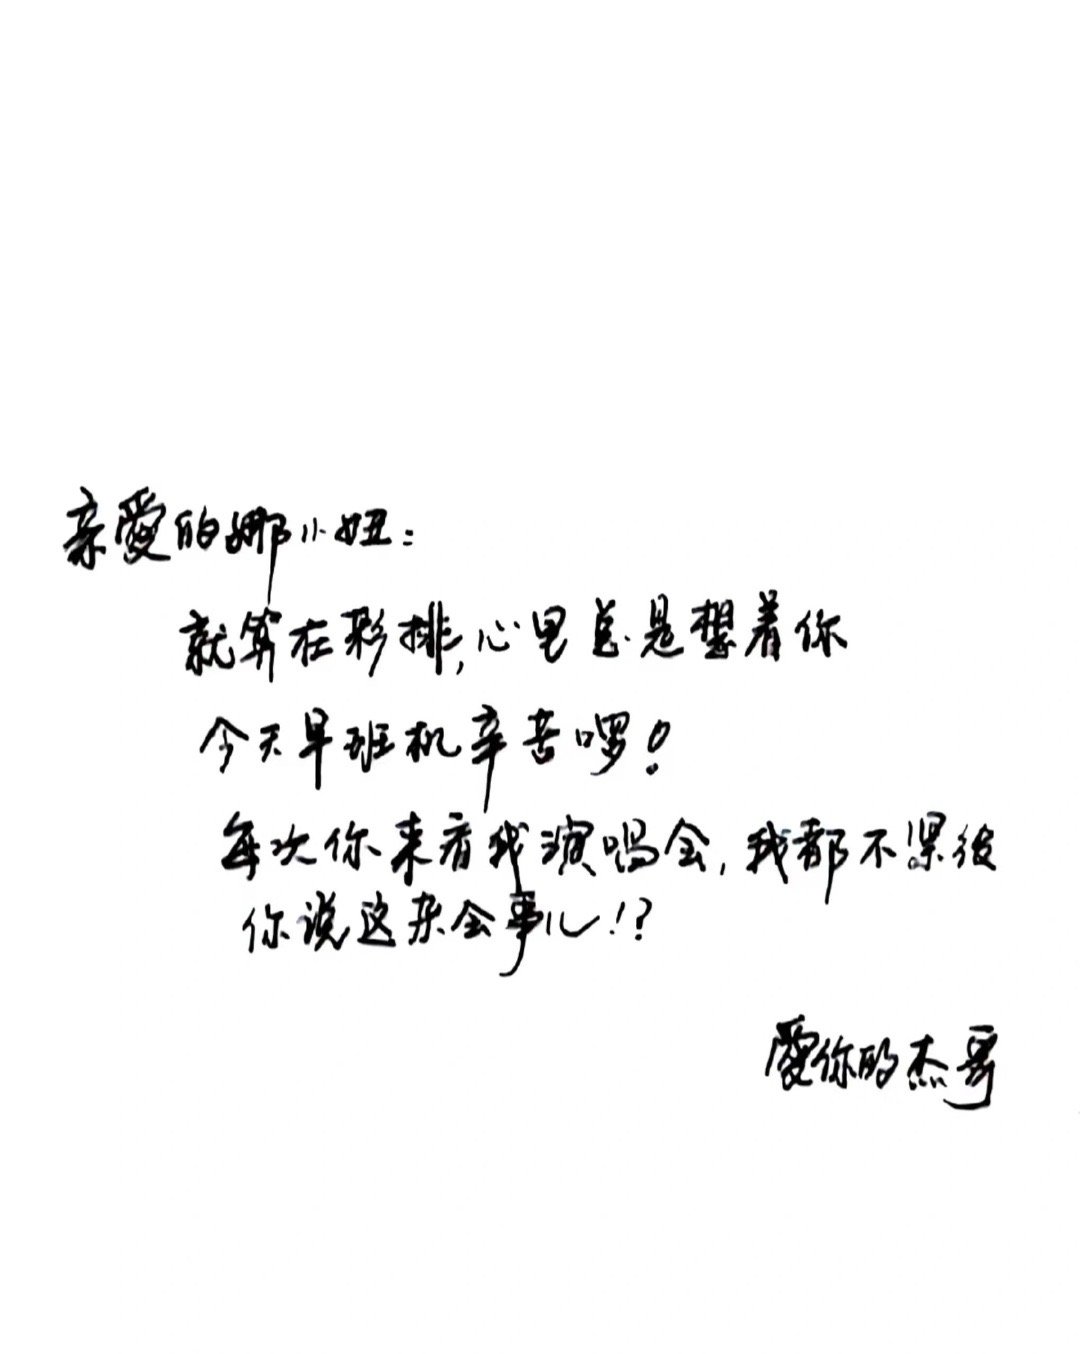 亲愛的娜小妞：
就算在彩排，心里总是想着你
今天早班机辛苦啰！
每次你来看我演唱会，我都不
你说这朵会事儿！？
愛你的杰哥